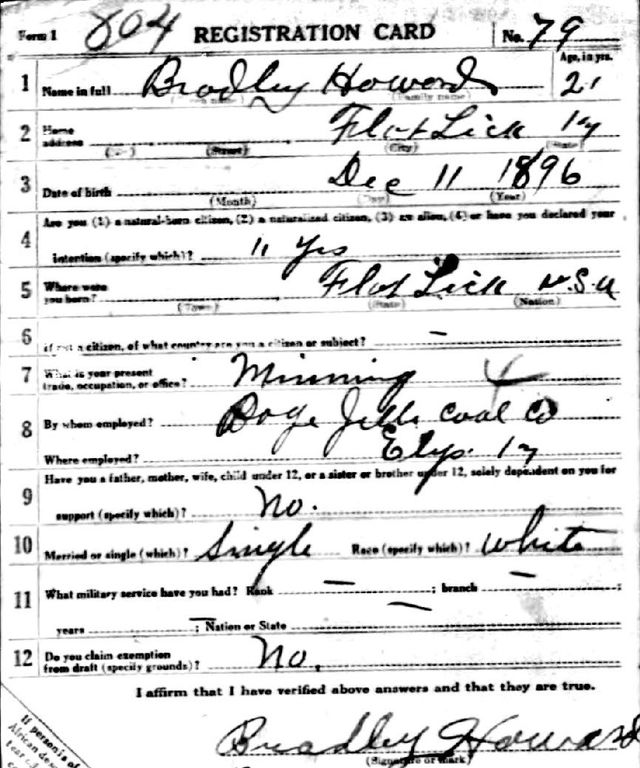 Form 1 804 REGISTRATION CARD No. 79
1 Name in full Bradley Howard Age, in yrs. 21
(Family name)
2 Home address Flat Lick Ky
(No.) (Street) (City) (State)
3 Date of birth Dec 11 1896
(Month) (Day) (Year)
4 Are you (1) a natural-born citizen, (2) a naturalized citizen, (3) an alien, (4) or have you declared your
intention (specify which)? 11 Yes
5 Where were you born? Flat Lick U.S.a
(Town) (State) (Nation)
6 If not a citizen, of what country are you a citizen or subject? –
7 What is your present trade, occupation, or office? Minning
8 By whom employed? Coal Co
Where employed? Elys. Ky
9 Have you a father, mother, wife, child under 12, or a sister or brother under 12, solely dependent on you for
support (specify which)? No.
10 Married or single (which)? Single Race (specify which)? White
11 What military service have you had? Rank – ; branch – ;
years – ; Nation or State –
12 Do you claim exemption from draft (specify grounds)? No.
I affirm that I have verified above answers and that they are true.
Bradley Howard
(Signature or mark)
If person is of
African